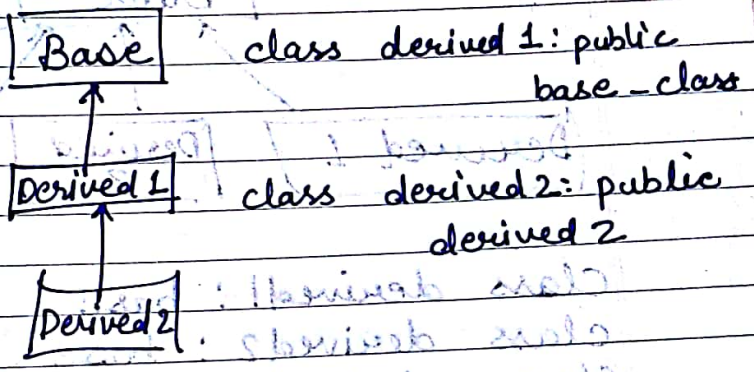 Base
class derived 1: public
base_class
Derived 1
class derived2: public
derived 2
Derived 2